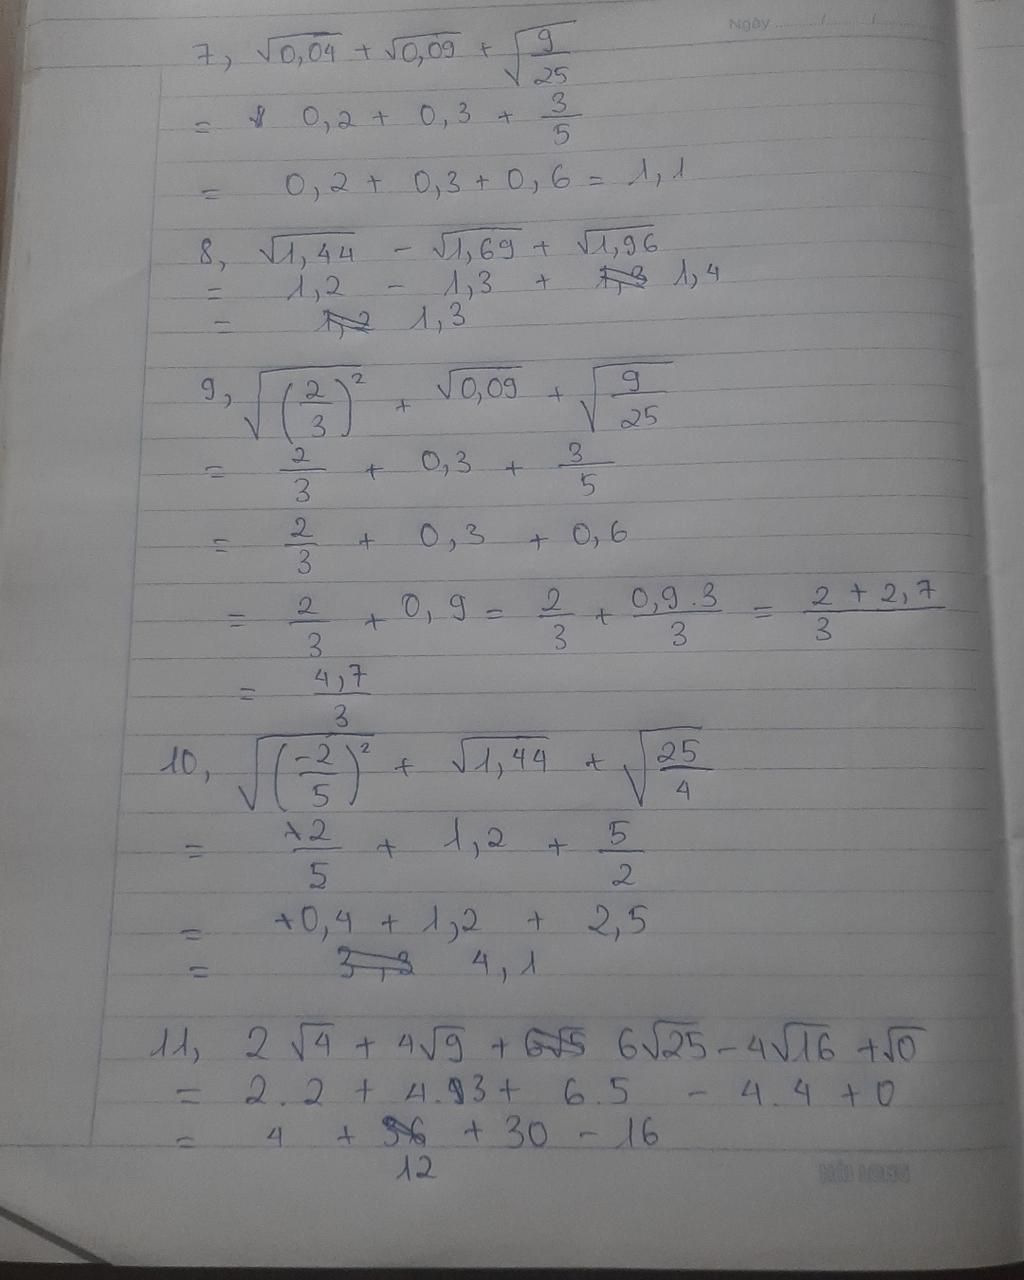 Ngày ...... / ...... / ......
7, √0,04 + √0,09 + √(9/25)
= 0,2 + 0,3 + 3/5
= 0,2 + 0,3 + 0,6 = 1,1
8, √1,44 - √1,69 + √1,96
= 1,2 - 1,3 + 1,4
= 1,3
9, √((2/3)²) + √0,09 + √(9/25)
= 2/3 + 0,3 + 3/5
= 2/3 + 0,3 + 0,6
= 2/3 + 0,9 = 2/3 + (0,9.3)/3 = (2 + 2,7)/3
= 4,7/3
10, √((-2/5)²) + √1,44 + √(25/4)
= +2/5 + 1,2 + 5/2
= +0,4 + 1,2 + 2,5
= 4,1
11, 2√4 + 4√9 + 6√25 - 4√16 + √0
= 2.2 + 4.3 + 6.5 - 4.4 + 0
= 4 + 12 + 30 - 16